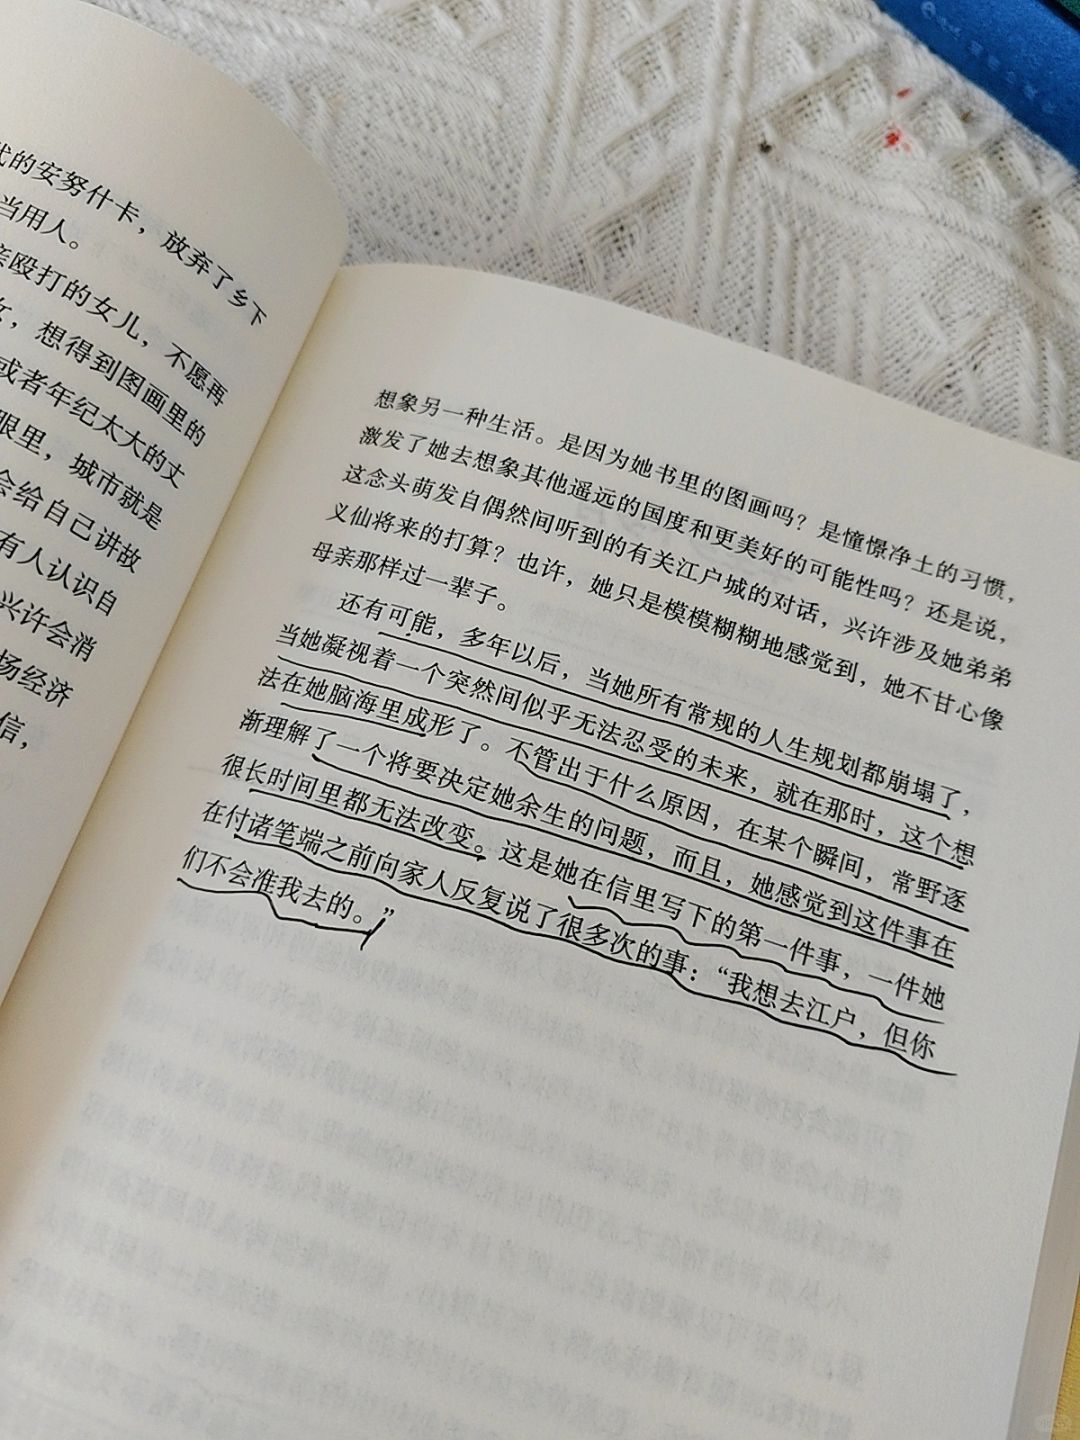 代的安努什卡，放弃了乡下
当用人。
亲殴打的女儿，不愿再
女，想得到图画里的
或者年纪太大的丈
眼里，城市就是
会给自己讲故
有人认识自
兴许会消
场经济
信，
想象另一种生活。是因为她书里的图画吗？是憧憬净土的习惯，
激发了她去想象其他遥远的国度和更美好的可能性吗？还是说，
这念头萌发自偶然间听到的有关江户城的对话，兴许涉及她弟弟
义仙将来的打算？也许，她只是模模糊糊地感觉到，她不甘心像
母亲那样过一辈子。
还有可能，多年以后，当她所有常规的人生规划都崩塌了，
当她凝视着一个突然间似乎无法忍受的未来，就在那时，这个想
法在她脑海里成形了。不管出于什么原因，在某个瞬间，常野逐
渐理解了一个将要决定她余生的问题，而且，她感觉到这件事在
很长时间里都无法改变。这是她在信里写下的第一件事，一件她
在付诸笔端之前向家人反复说了很多次的事：“我想去江户，但你
们不会准我去的。”